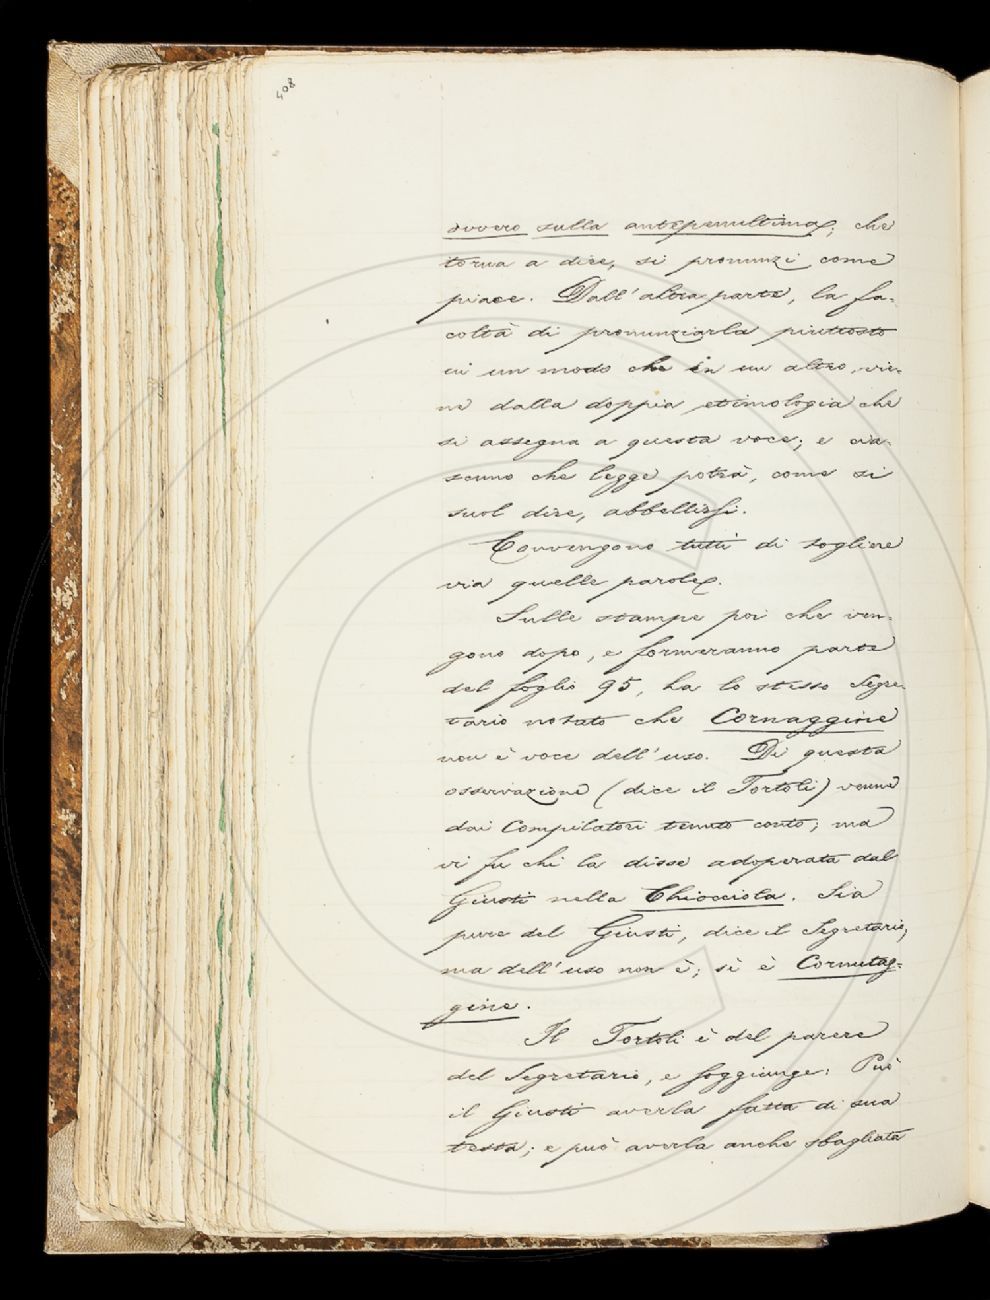 408
ovvero sulla antepenultima; che
torna a dire, si pronunzi come
piace. Dall'altra parte, la fa-
coltà di pronunziarla piuttosto
in un modo che in un altro, vie-
ne dalla doppia etimologia che
si assegna a questa voce; e cia-
scuno che legge potrà, come si
suol dire, abbellirsi.
Convengono tutti di togliere
via quelle parole.
Sulle stampe poi che ven-
gono dopo, e formeranno parte
del foglio 95, ha lo stesso Segre-
tario notato che Cornaggine
non è voce dell'uso. Di questa
osservazione (dice il Tortoli) venne
dai Compilatori tenuto conto; ma
vi fu chi la disse adoperata dal
Giusti nella Chiocciola. Sia
pure del Giusti, dice il Segretario,
ma dell'uso non è; sì è Cornutag-
gine.
Il Tortoli è del parere
del Segretario, e soggiunge: Può
il Giusti averla fatta di sua
testa; e può averla anche sbagliata